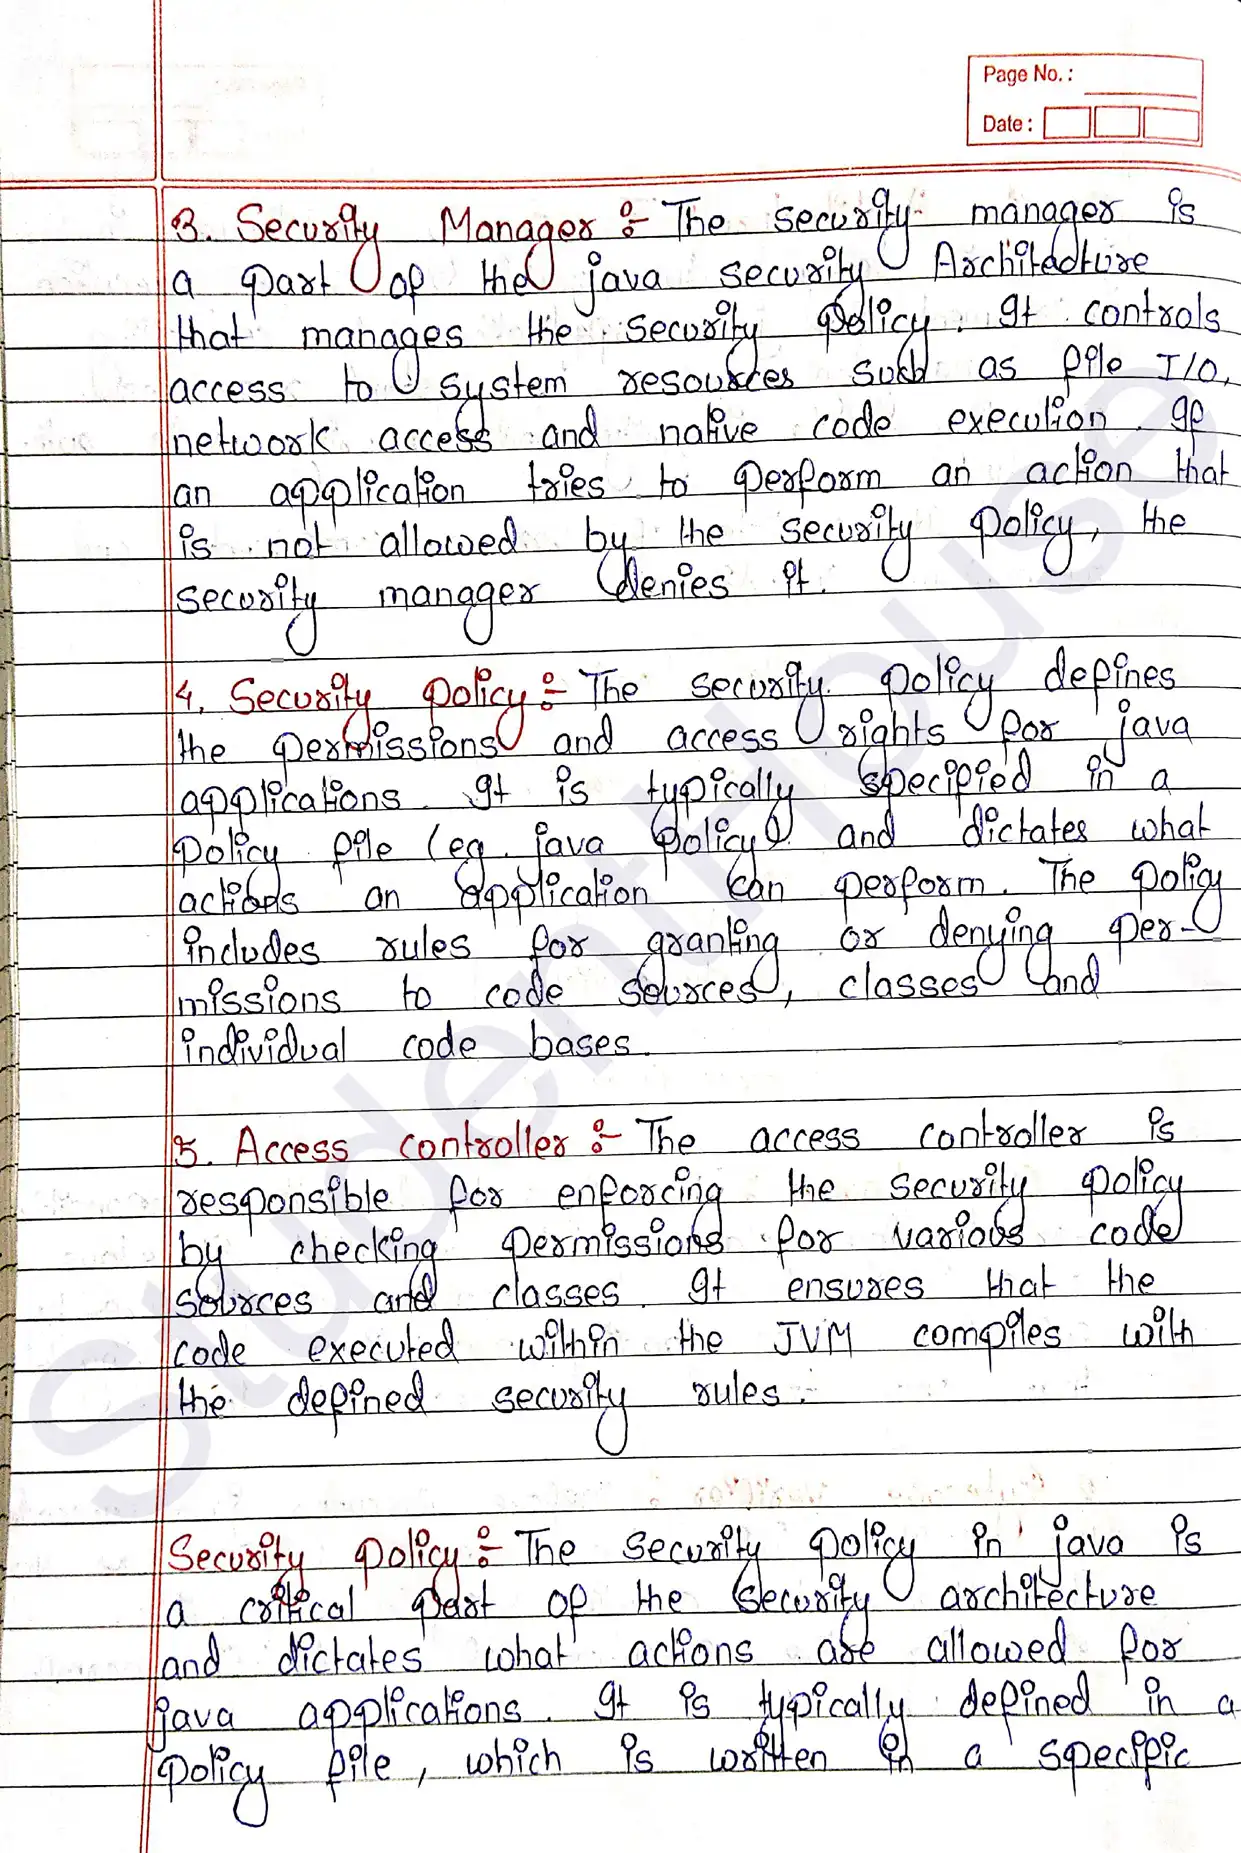 Page No. :
Date :
3. Security Manager :- The security manager is
a part of the java security Architecture
that manages the security policy. It controls
access to system resources such as file I/O,
network access and native code execution. If
an application tries to perform an action that
is not allowed by the security policy, the
security manager denies it.
4. Security policy :- The security policy defines
the permissions and access rights for java
applications. It is typically specified in a
policy file (eg. java policy) and dictates what
actions an application can perform. The policy
includes rules for granting or denying per-
missions to code sources, classes and
individual code bases.
5. Access controller :- The access controller is
responsible for enforcing the security policy
by checking permissions for various code
sources and classes. It ensures that the
code executed within the JVM compiles with
the defined security rules.
Security policy :- The security policy in java is
a critical part of the security architecture
and dictates what actions are allowed for
java applications. It is typically defined in a
policy file, which is written in a specific
StudentHouse